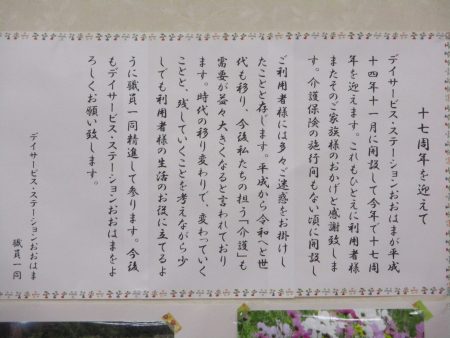 十七周年を迎えて
デイサービス・ステーションおおはまが平成
十四年十一月に開設して今年で十七周
年を迎えます。これもひとえに利用者様
またそのご家族様のおかげと感謝致しま
す。介護保険の施行間もない頃に開設し
ご利用者様には多々ご迷惑をお掛けし
たことと存じます。平成から令和へと世
代も移り、今後私たちの担う「介護」も
需要が益々大きくなると言われており
ます。時代の移り変わりで、変わっていく
ことと、残していくことを考えながら少
しでも利用者様の生活のお役に立てるよ
うに職員一同精進して参ります。今後
もデイサービス・ステーションおおはまをよ
ろしくお願い致します。
デイサービス・ステーションおおはま
職員一同